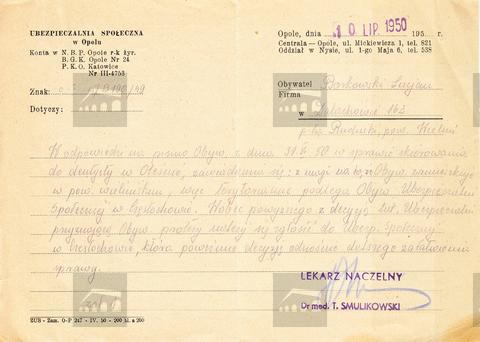 UBEZPIECZALNIA SPOŁECZNA
w Opolu
Konta w N. B. P. Opole r-k żyr.
B. G. K. Opole Nr 24
P. K. O. Katowice
Nr III-4753
Znak:
Dotyczy:
Opole, dnia 10 LIP. 1950 195
Centrala — Opole, ul. Mickiewicza 1, tel. 821
Oddział w Nysie, ul. 1-go Maja 6, tel. 538
Obywatel Borkowski
Firma
w 162
pow. Wieluń
W odpowiedzi na pismo Obyw. z dnia 50 w sprawie skierowania
do dentysty w Oleśnie, zawiadamia się: z uwagi na to, że Obyw. zamieszkuje
w pow. wieluńskim, więc terytorialnie podlega Obyw. Ubezpieczalni
Społecznej w Częstochowie. Wobec powyższego z decyzją tut. Ubezpieczalni
przyznającą Obyw. należy się zgłosić do Ubezp. Społecznej
w Częstochowie, która poweźmie decyzję odnośnie dalszego załatwienia
sprawy.
LEKARZ NACZELNY
Dr med. T. SMULIKOWSKI
ZUS - Zam. O-P 247 - IV. 50 - 200 bl. a 200